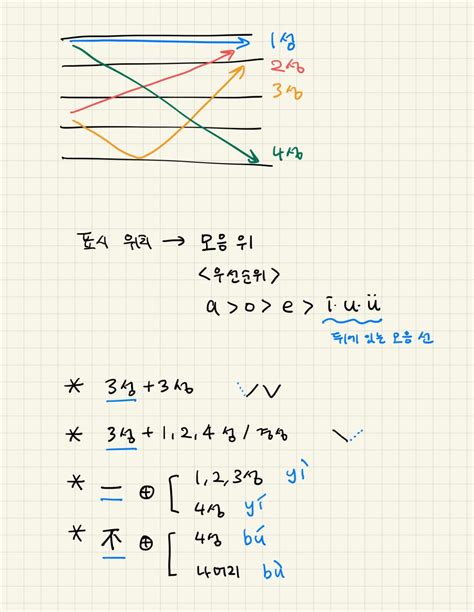 1성
2성
3성
4성
표시 위치 → 모음 위
<우선순위>
a > o > e > i · u · ü
뒤에 있는 모음 선
* 3성 + 3성
* 3성 + 1, 2, 4성 / 경성
* 一 ⊕ [ 1, 2, 3성 yì
4성 yí
* 不 ⊕ [ 4성 bú
나머지 bù